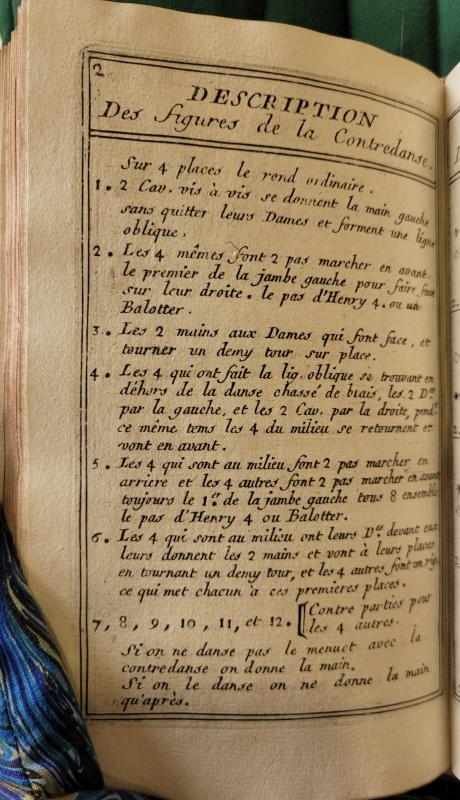 2
DESCRIPTION
Des figures de la Contredanse.
Sur 4 places le rond ordinaire.
1. 2 Cav. vis à vis se donnent la main gauche
sans quitter leurs Dames et forment une ligne
oblique.
2. Les 4 mêmes font 2 pas marcher en avant.
le premier de la jambe gauche pour faire face
sur leur droite. le pas d'Henry 4. ou un
Balotter.
3. Les 2 mains aux Dames qui font face, et
tourner un demy tour sur place.
4. Les 4 qui ont fait la lig. oblique se trouvant en
déhors de la danse chassé de biais, les 2 D.es
par la gauche, et les 2 Cav. par la droite, pend.t
ce même tems les 4 du milieu se retournent et
vont en avant.
5. Les 4 qui sont au milieu font 2 pas marcher en
arriere et les 4 autres font 2 pas marcher en avant
toujours le 1.er de la jambe gauche tous 8 ensemble
le pas d'Henry 4 ou Balotter.
6. Les 4 qui sont au milieu ont leurs D.es devant eux
leurs donnent les 2 mains et vont à leurs places
en tournant un demy tour, et les 4 autres font un
ce qui met chacun à ces premieres places.
7, 8, 9, 10, 11, et 12. [Contre parties pour
les 4 autres.
Si on ne danse pas le menuet avec la
contredanse on donne la main.
Si on le danse on ne donne la main
qu'après.